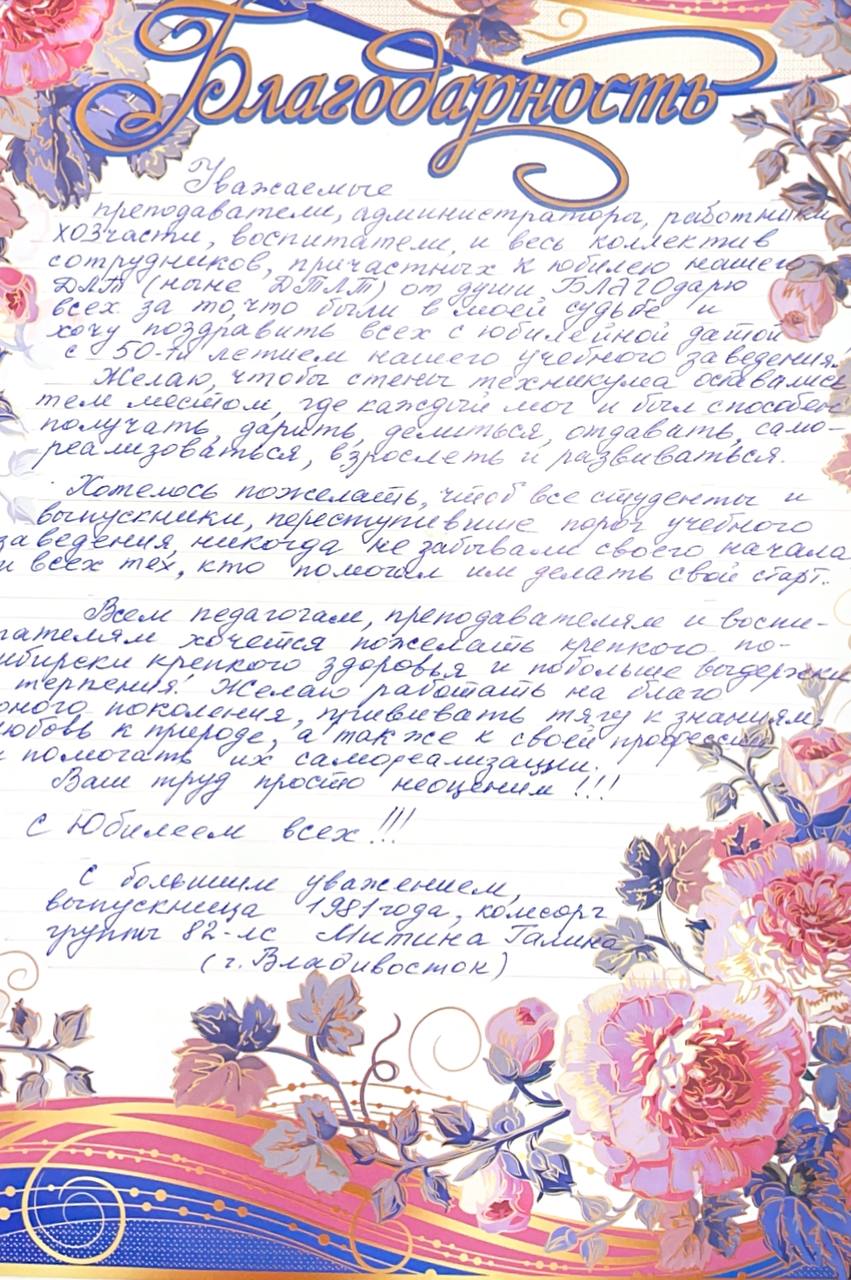 Благодарность
Уважаемые
преподаватели, администраторы, работники
ХОЗчасти, воспитатели, и весь коллектив
сотрудников, причастных к юбилею нашего
ДЛТ (ныне ДТЛТ) от души БЛАГОдарю
всех за то, что были в моей судьбе и
хочу поздравить всех с юбилейной датой
с 50-ти летием нашего учебного заведения.
Желаю, чтобы стены техникума оставались
тем местом, где каждый мог и был способен
получать, дарить, делиться, отдавать, само-
реализоваться, взрослеть и развиваться.
Хотелось пожелать, чтоб все студенты и
выпускники, переступившие порог учебного
заведения, никогда не забывали своего начала
и всех тех, кто помогал им делать свой старт.
Всем педагогам, преподавателям и воспи-
тателям хочется пожелать крепкого по-
сибирски крепкого здоровья и побольше выдержки
терпения. Желаю работать на благо
поколения, прививать тягу к знаниям,
любовь к природе, а также к своей профессии
и помогать их самореализации.
Ваш труд просто неоценим!!!
С Юбилеем всех!!!
С большим уважением,
выпускница 1981 года, комсорг
группы 82-лс Митина Галина
(г. Владивосток)